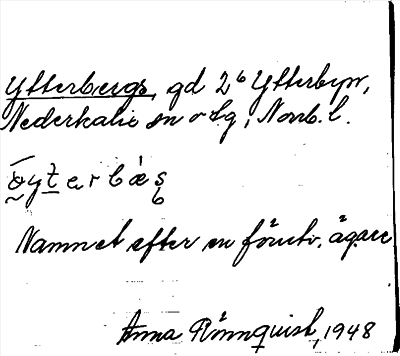 Ytterbergs, gd 2⁶ Ytterbyn,
Nederkalix sn o tg, Norrb. l.
Namnet efter en föregåe. ägare
Anna Rönnquist, 1948